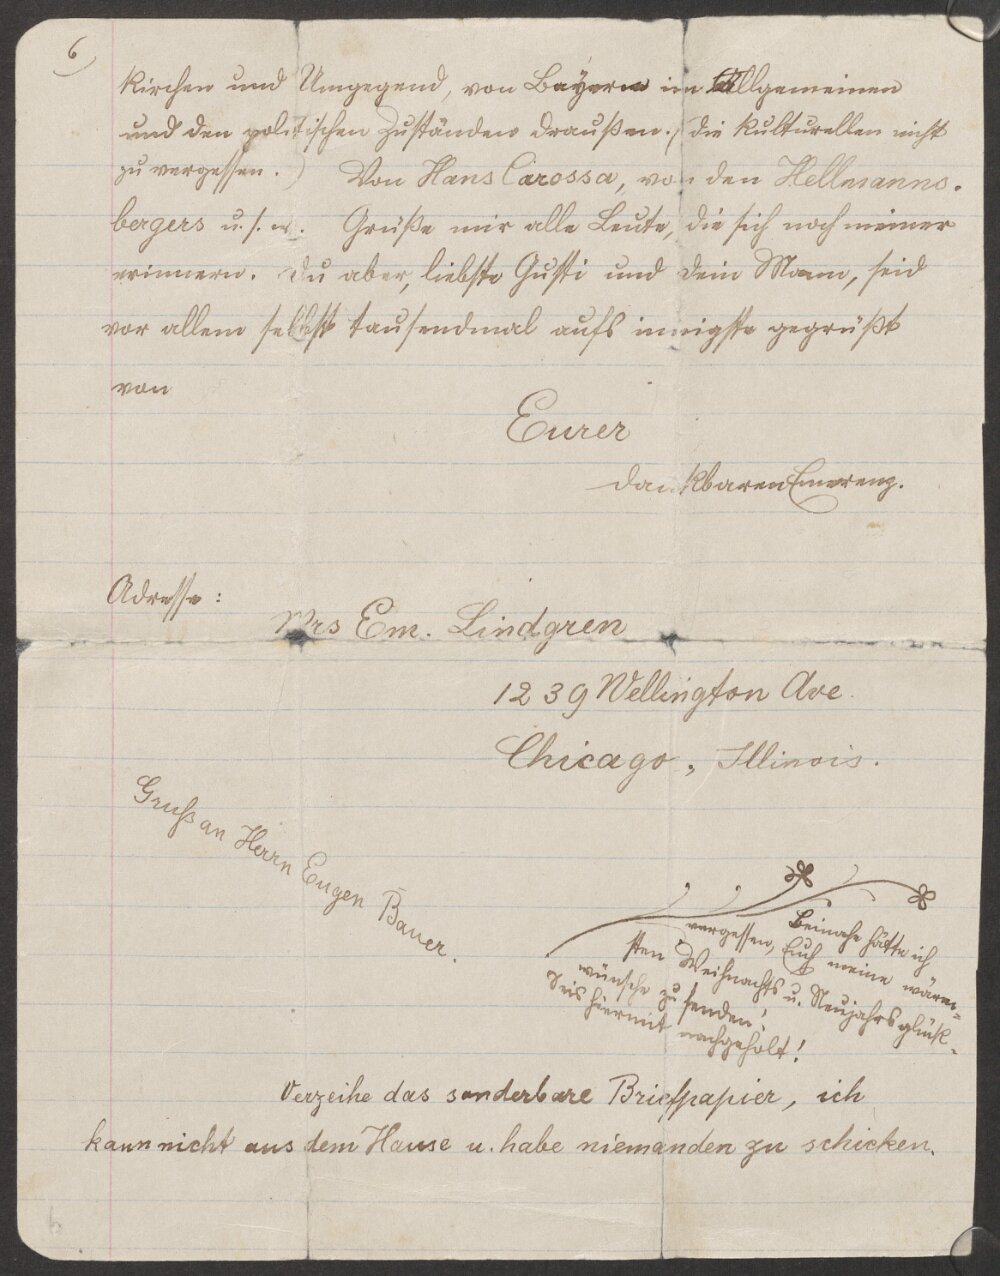 6)
kirchen und Umgegend, von Bayern im Allgemeinen
und den politischen Zuständen draußen. (die kulturellen nicht
zu vergessen.) Von Hans Carossa, von den Hellmanns-
bergers u.s.w. Grüße mir alle Leute, die sich noch meiner
erinnern. Du aber, liebste Gusti und dein Mann, seid
vor allem selbst tausendmal aufs innigste gegrüßt
von
Eurer
dankbaren Emerenz.
Adresse:
Mrs Em. Lindgren
1239 Wellington Ave.
Chicago, Illinois.
Gruß an Herrn Eugen Bauer.
Beinahe hätte ich
vergessen, Euch meine wärm-
sten Weihnachts u. Neujahrsglück-
wünsche zu senden!
Seis hiermit nachgeholt!
Verzeihe das sonderbare Briefpapier, ich
kann nicht aus dem Hause u. habe niemanden zu schicken.
6